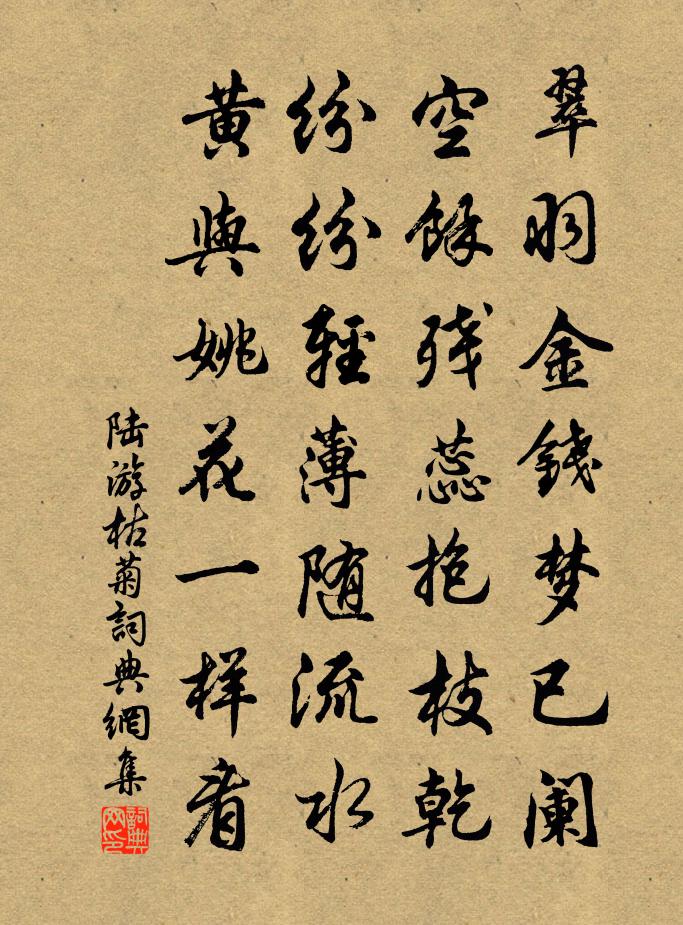 翠羽金錢梦已阑
空餘残蕊抱枝乾
纷纷輕薄随流水
黄與姚花一样看
陆游枯菊詞典網集
詞典网印